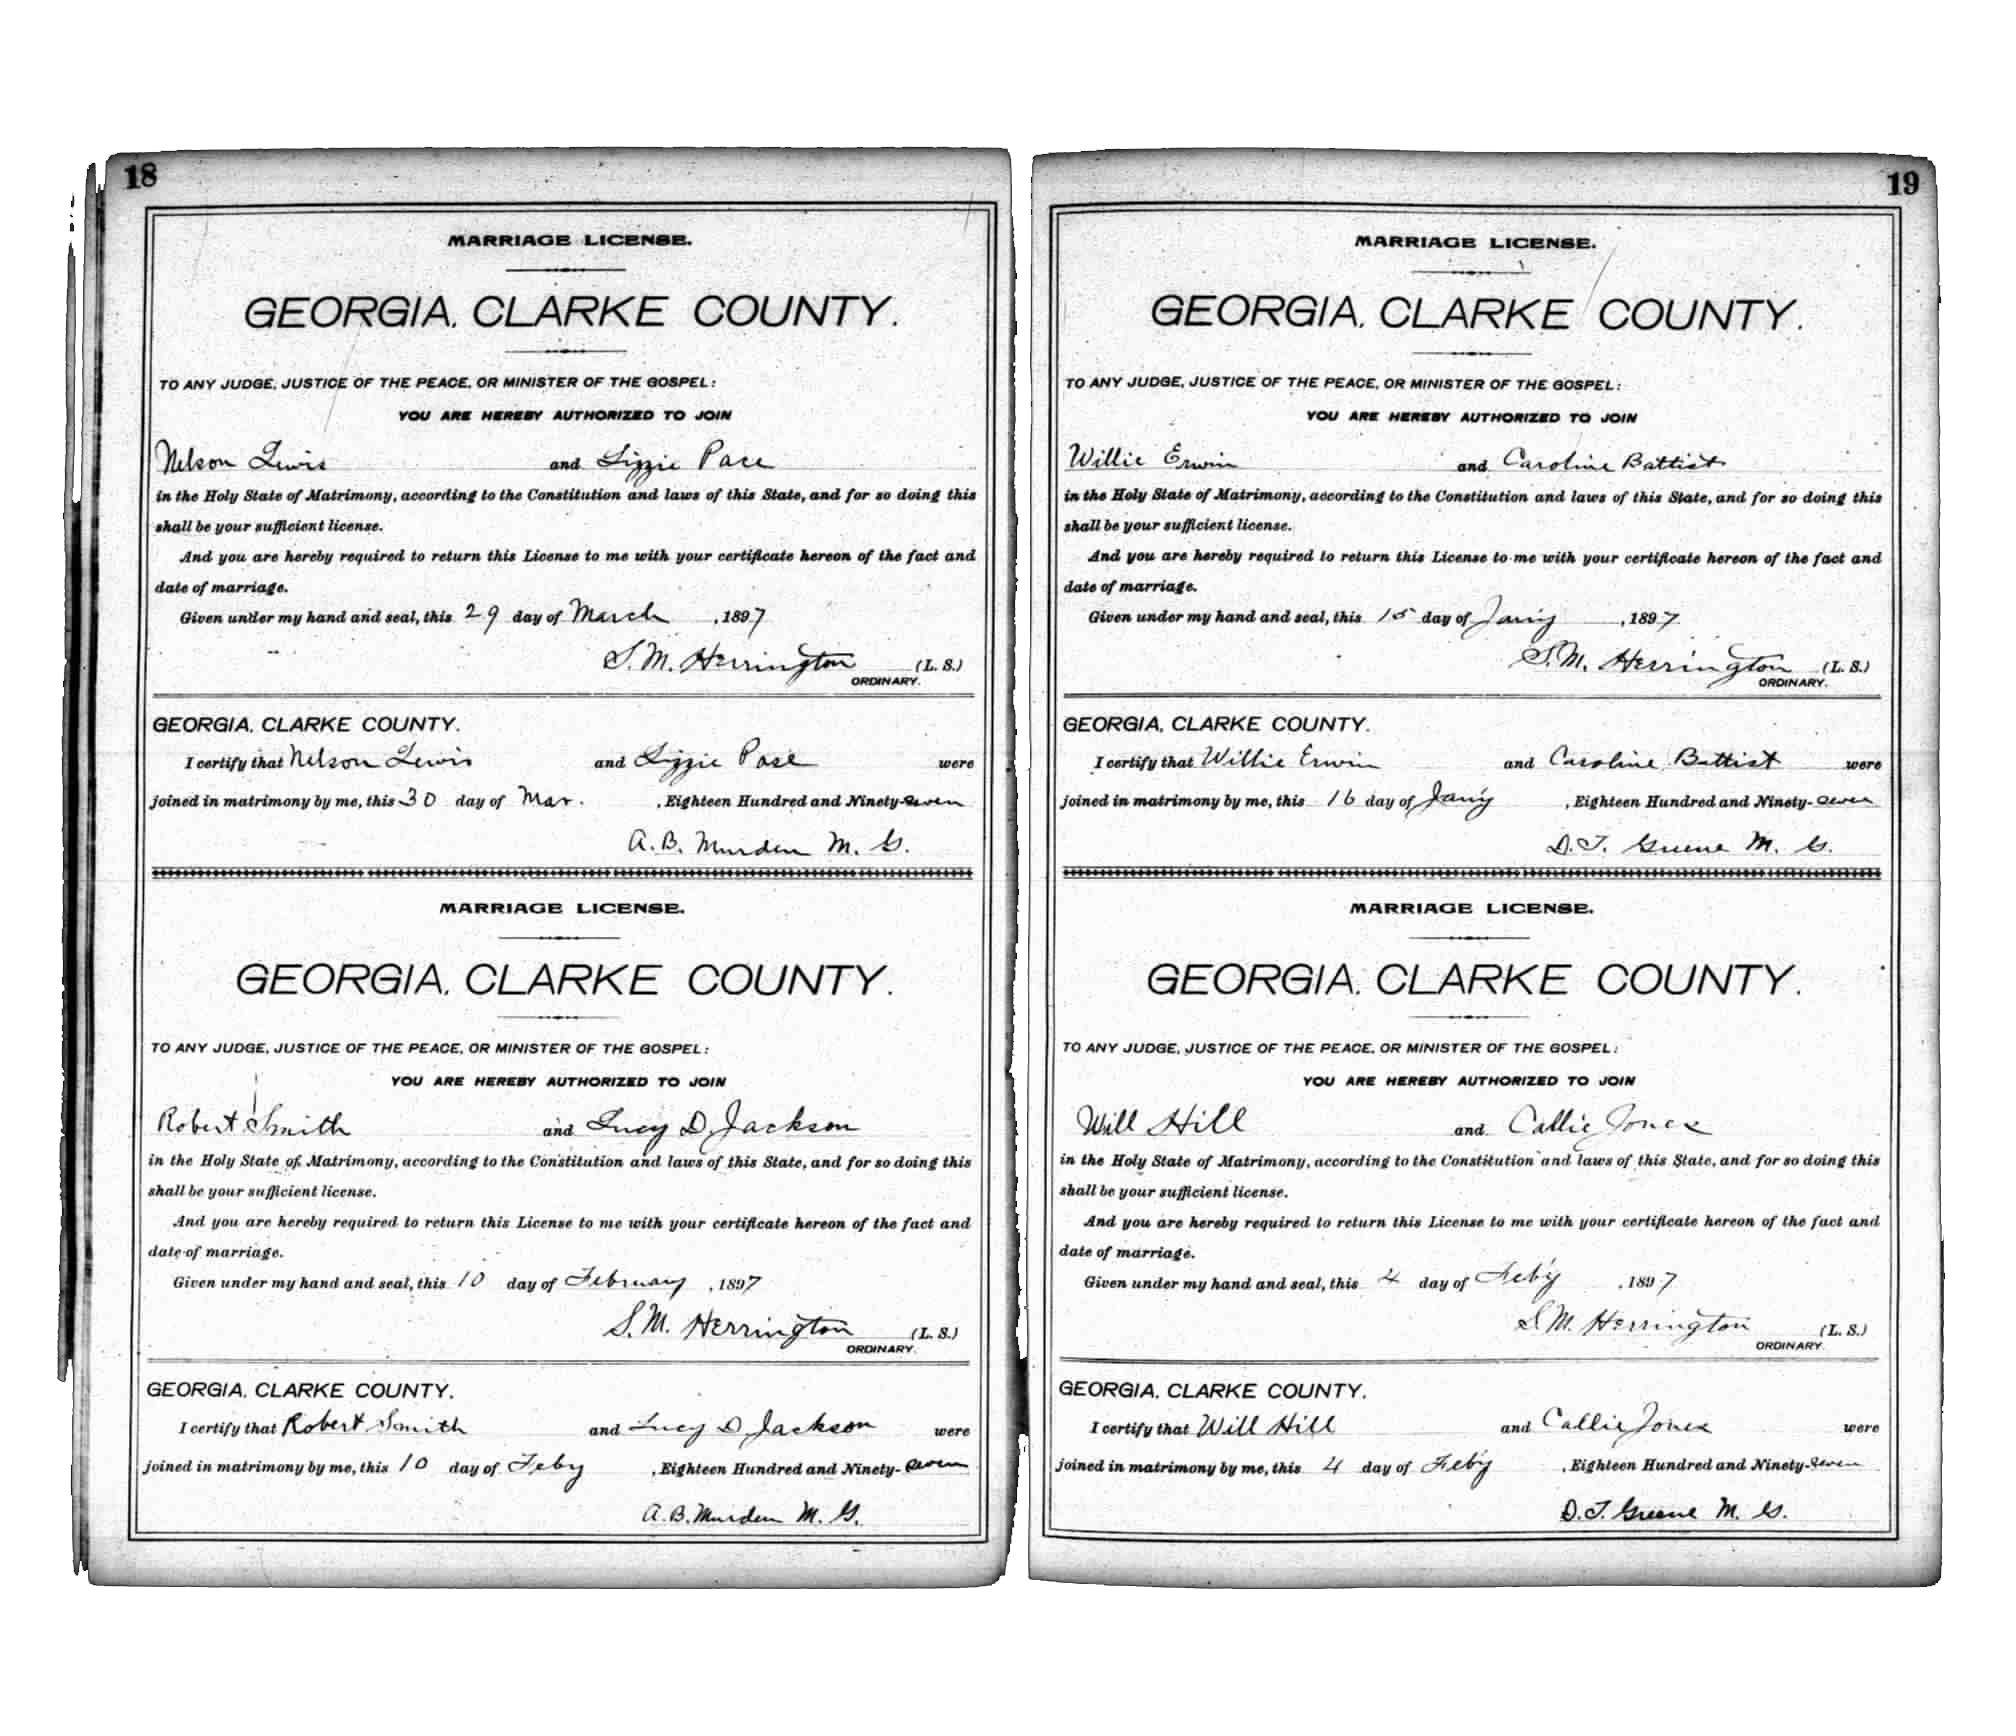 18
MARRIAGE LICENSE.
GEORGIA, CLARKE COUNTY.
TO ANY JUDGE, JUSTICE OF THE PEACE, OR MINISTER OF THE GOSPEL:
YOU ARE HEREBY AUTHORIZED TO JOIN
Nelson Lewis and Lizzie Pace
in the Holy State of Matrimony, according to the Constitution and laws of this State, and for so doing this
shall be your sufficient license.
And you are hereby required to return this License to me with your certificate hereon of the fact and
date of marriage.
Given under my hand and seal, this 29 day of March, 1897
S. M. Herrington (L. S.)
ORDINARY.
GEORGIA, CLARKE COUNTY.
I certify that Nelson Lewis and Lizzie Pace were
joined in matrimony by me, this 30 day of Mar. , Eighteen Hundred and Ninety-seven
A. B. Murden M. G.
MARRIAGE LICENSE.
GEORGIA, CLARKE COUNTY.
TO ANY JUDGE, JUSTICE OF THE PEACE, OR MINISTER OF THE GOSPEL:
YOU ARE HEREBY AUTHORIZED TO JOIN
Robert Smith and Lucy D. Jackson
in the Holy State of Matrimony, according to the Constitution and laws of this State, and for so doing this
shall be your sufficient license.
And you are hereby required to return this License to me with your certificate hereon of the fact and
date of marriage.
Given under my hand and seal, this 10 day of February, 1897
S. M. Herrington (L. S.)
ORDINARY.
GEORGIA, CLARKE COUNTY.
I certify that Robert Smith and Lucy D Jackson were
joined in matrimony by me, this 10 day of Feby , Eighteen Hundred and Ninety-seven
A. B. Murden M. G.
19
MARRIAGE LICENSE.
GEORGIA, CLARKE COUNTY.
TO ANY JUDGE, JUSTICE OF THE PEACE, OR MINISTER OF THE GOSPEL:
YOU ARE HEREBY AUTHORIZED TO JOIN
Willie Erwin and Caroline Battist
in the Holy State of Matrimony, according to the Constitution and laws of this State, and for so doing this
shall be your sufficient license.
And you are hereby required to return this License to me with your certificate hereon of the fact and
date of marriage.
Given under my hand and seal, this 15 day of Jan'y , 1897
S. M. Herrington (L. S.)
ORDINARY.
GEORGIA, CLARKE COUNTY.
I certify that Willie Erwin and Caroline Battist were
joined in matrimony by me, this 16 day of Jan'y , Eighteen Hundred and Ninety-seven
D. T. Greene M. G.
MARRIAGE LICENSE.
GEORGIA, CLARKE COUNTY.
TO ANY JUDGE, JUSTICE OF THE PEACE, OR MINISTER OF THE GOSPEL:
YOU ARE HEREBY AUTHORIZED TO JOIN
Will Hill and Callie Jones
in the Holy State of Matrimony, according to the Constitution and laws of this State, and for so doing this
shall be your sufficient license.
And you are hereby required to return this License to me with your certificate hereon of the fact and
date of marriage.
Given under my hand and seal, this 4 day of Feb'y , 1897
S. M. Herrington (L. S.)
ORDINARY.
GEORGIA, CLARKE COUNTY.
I certify that Will Hill and Callie Jones were
joined in matrimony by me, this 4 day of Feb'y , Eighteen Hundred and Ninety-seven
D. T. Greene M. G.